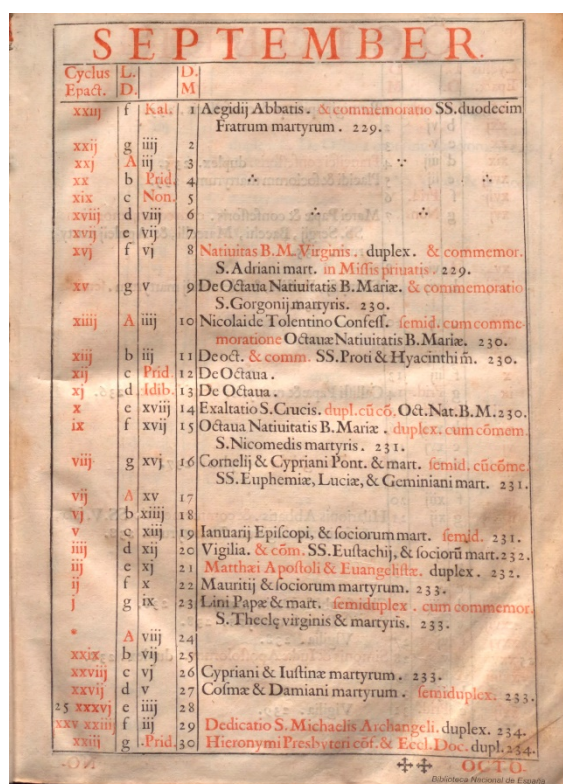 SEPTEMBER.
Cyclus L. D.
Epact. D. M
xxiij f Kal. 1 Aegidij Abbatis. & commemoratio SS. duodecim
Fratrum martyrum. 229.
xxij g iiij 2
xxj A iij 3
xx b Prid. 4
xix c Non. 5
xviij d viij 6
xvij e vij 7
xvj f vj 8 Natiuitas B. M. Virginis. duplex. & commemor.
S. Adriani mart. in Missis priuatis. 229.
xv g v 9 De Octaua Natiuitatis B. Mariæ. & commemoratio
S. Gorgonij martyris. 230.
xiiij A iiij 10 Nicolai de Tolentino Confess. semid. cum comme-
moratione Octauæ Natiuitatis B. Mariæ. 230.
xiij b iij 11 De oct. & comm. SS. Proti & Hyacinthi m̃. 230.
xij c Prid. 12 De Octaua.
xj d Idib. 13 De Octaua.
x e xviij 14 Exaltatio S. Crucis. dupl. cũ cõ. Oct. Nat. B. M. 230.
ix f xvij 15 Octaua Natiuitatis B. Mariæ. duplex. cum cõmem.
S. Nicomedis martyris. 231.
viij g xvj 16 Cornelij & Cypriani Pont. & mart. semid. cũ cõme.
SS. Euphemiæ, Luciæ, & Geminiani mart. 231.
vij A xv 17
vj b xiiij 18
v c xiij 19 Ianuarij Episcopi, & sociorum mart. semid. 231.
iiij d xij 20 Vigilia. & cõm. SS. Eustachij, & sociorũ mart. 232.
iij e xj 21 Matthæi Apostoli & Euangelistæ. duplex. 232.
ij f x 22 Mauritij & sociorum martyrum. 233.
j g ix 23 Lini Papæ & mart. semiduplex. cum commemor.
S. Theclę virginis & martyris. 233.
* A viij 24
xxix b vij 25
xxviij c vj 26 Cypriani & Iustinæ martyrum. 233.
xxvij d v 27 Cosmæ & Damiani martyrum. semiduplex. 233.
25 xxxvj e iiij 28
xxv xxiiij f iij 29 Dedicatio S. Michaelis Archangeli. duplex. 234.
xxiij g Prid. 30 Hieronymi Presbyteri cõf. & Eccl. Doc. dupl. 234.
OCTO.
Biblioteca Nacional de España